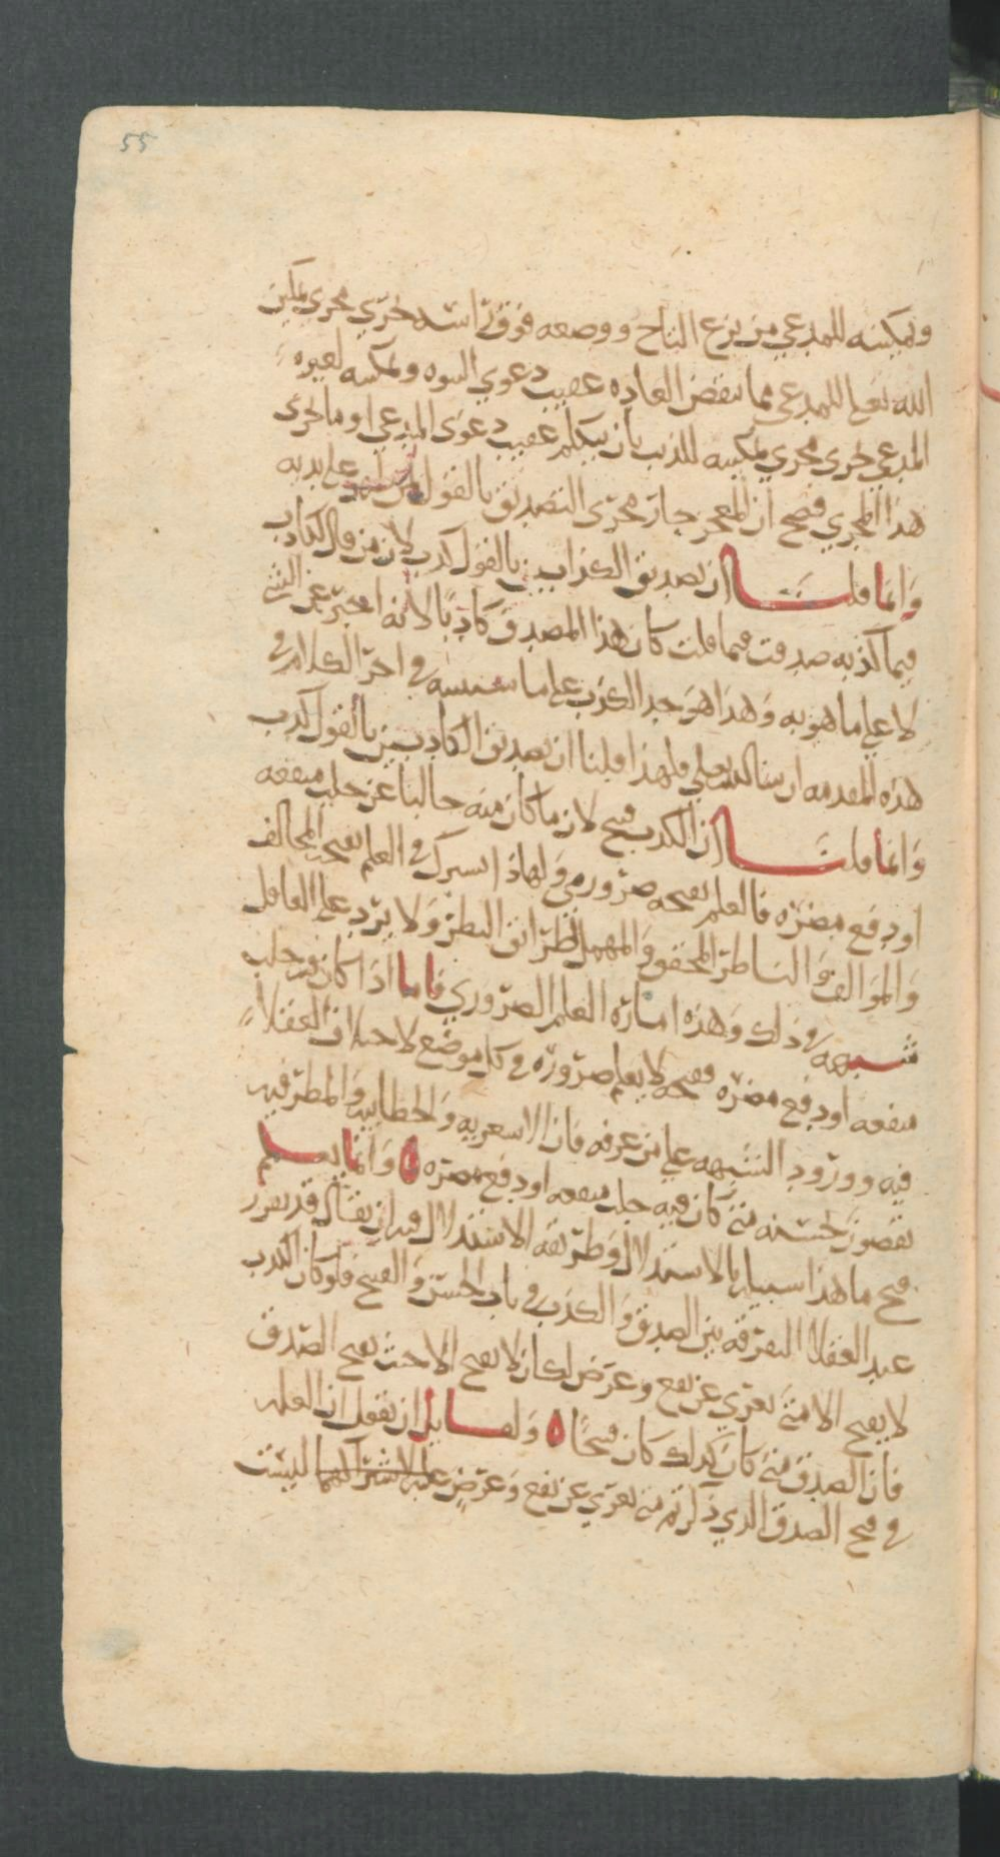 55
وتمكينه للمدعي من نزع التاج ووضعه فوق راسه يجري مجرى تمكين
الله تعالى للمدعي مما ينقض العاده عقيب دعوى النبوه وتمكينه لغيره
المدعي يجري مجرى تمكينه للذئب بان يتكلم عقيب دعوى المدعي او ما يجرى
هذا المجرى فصح ان المعجز جار مجرى التصديق بالقول لمن ظهر على يديه
وانما قلنا ان تصديق الكذابين بالقول كذب لان من قال لكاذب
فيما كذبه صدقت فيما قلت كان هذا المصدق كاذبا لانه اخبر عن الشي
لا على ما هو به وهذا هو حد الكذب على ما سنبينه في اخر الكلام في
هذه المقدمه ان شا الله تعالى فلهذا قلنا ان تصديق الكاذبين بالقول كذب
وانما قلنا ان الكذب قبيح لان ما كان منه خاليا عن جلب منفعه
او دفع مضره فالعلم بقبحه ضروري ولهذا اشترك في العلم بقبحه المخالف
والموالف والناظر المحقق والمهمل لطرائق النظر ولا يرد على العاقل
شبهه في ذلك وهذه امارة العلم الضروري فاما اذا كان فيه جلب
منفعه او دفع مضره فقبحه لا يعلم ضرورة في كل موضع لاختلاف العقلاء
فيه وورود الشبهه على من عرفه فان الاشعريه والخطابيه والمطرفيه
يقضون بحسنه متى كان فيه جلب منفعه او دفع مضره ه وانما يعلم
قبح ما هذا سبيله بالاستدلال وطريقة الاستدلال فيه ان يقال قد تقرر
عند العقلاء التفرقه بين الصدق والكذب في باب الحسن والقبح فلو كان الكذب
لا يقبح الا متى تعرى عن نفع وغرض لكان لا يقبح الا حيث يقبح الصدق
فان الصدق متى كان كذلك كان قبيحا ه ولقايل ان يقول ان العلم
في قبح الصدق الذي ذكرتم متى تعرى عن نفع وغرض ليست